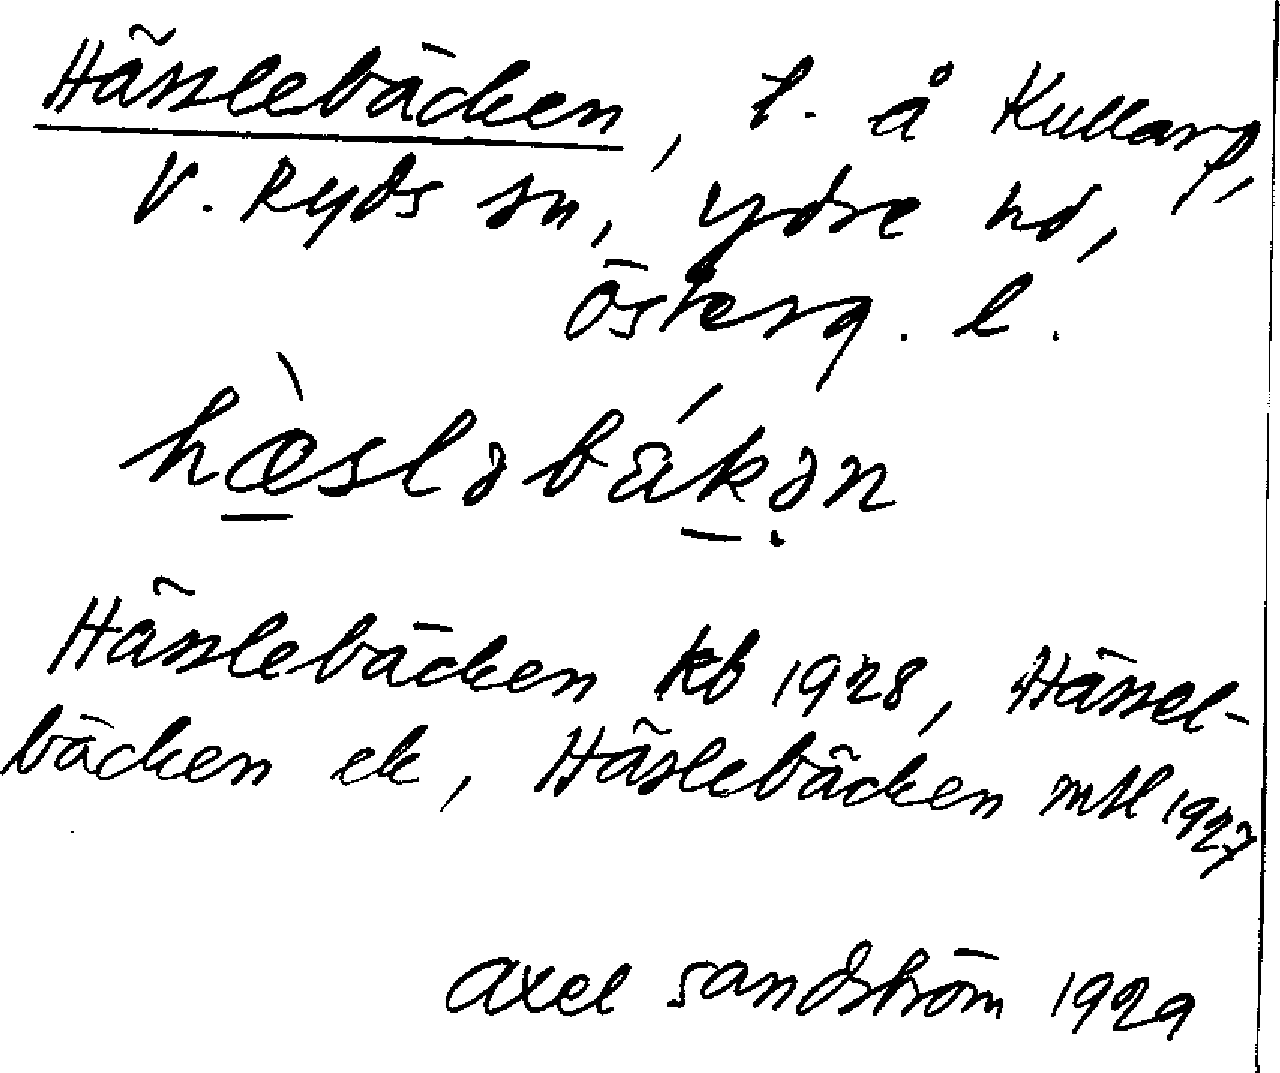 Hässlebäcken, t. å Kullarp,
V. Ryds sn, Ydre hd,
Österg. l.
hæ̀sləbäkə̣n
Hässlebäcken kb 1928, Hässel-
bäcken ek, Häslebäcken mtl 1927
Axel Sandström 1929